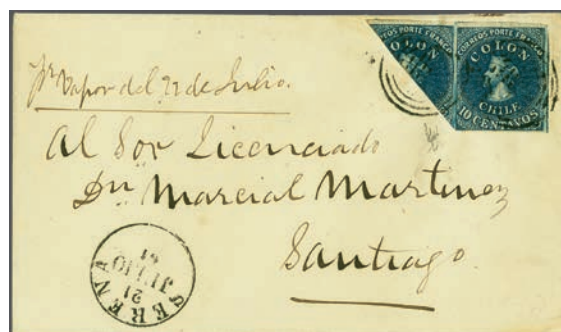 CORREOS PORTE FRANCO
COLON
CORREOS PORTE FRANCO
COLON
CHILE
10 CENTAVOS
Pr Vapor del 22 de Julio.
Al Sor Licenciado
Dn Marcial Martinez
Santiago.
SERENA
21
JULIO